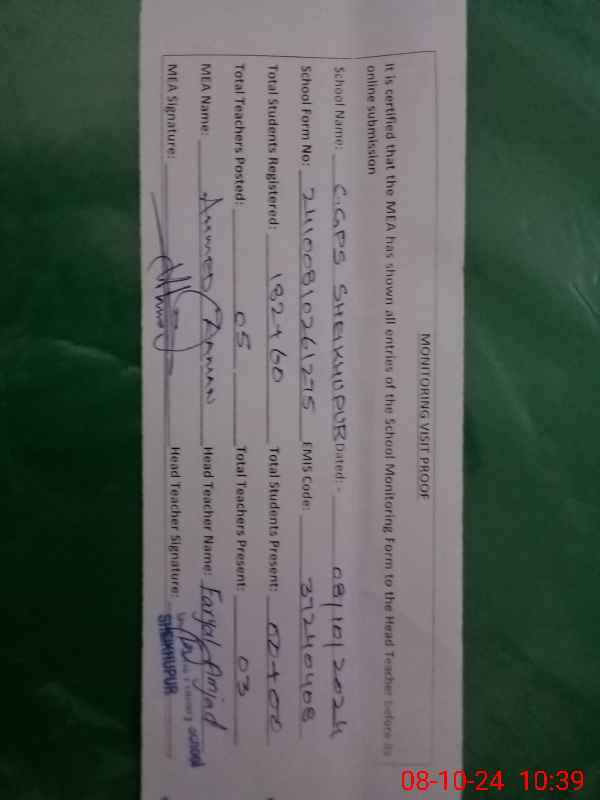 MONITORING VISIT PROOF
It is certified that the MEA has shown all entries of the School Monitoring Form to the Head Teacher before its
online submission
School Name: GGPS SHEIKHUPUR Dated: - 08/10/2024
School Form No: 24100810261275 EMIS Code: 37240408
Total Students Registered: 182+60 Total Students Present: 00+00
Total Teachers Posted: 05 Total Teachers Present: 03
MEA Name: Head Teacher Name: Faryal Amjad
MEA Signature: Head Teacher Signature:
School
SHEIKHUPUR
08-10-24 10:39